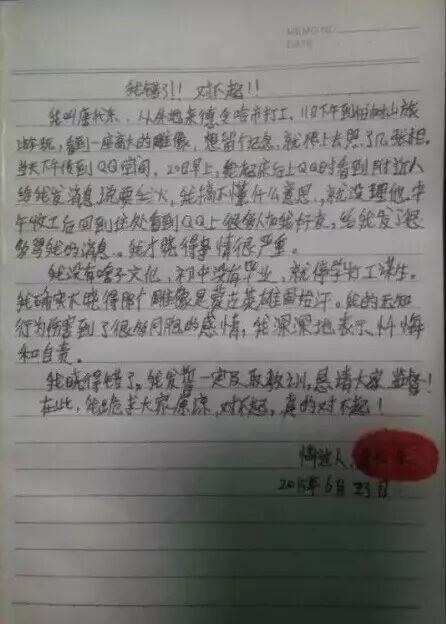 MEMO NO.
DATE
我错了!! 对不起!!
我叫唐代东、从外地来德令哈市打工,11日下午到柏树山旅
游玩,看到一座高大的雕像,想留个纪念,就爬上去照了几张相。
当天下午传到QQ空间,20日早上,我起床后上QQ时看到附近人
给我发消息说要灭火,我搞不懂什么意思,就没理他。中
午收工后回到住处看到QQ上很多人加我好友,给我发了很
多骂我的消息、我才晓得事情很严重。
我没有啥子文化,初中没有毕业,就停学打工谋生。
我确实不晓得那个雕像是蒙古英雄固始汗。我的无知
行为伤害到了很多同胞的感情,我深深地表示忏悔
和自责。
我晓得错了,我发誓一定及取教训,恳请大家监督!
在此,我跪求大家原谅,对不起,真的对不起!
悔过人:
2015年6月23日